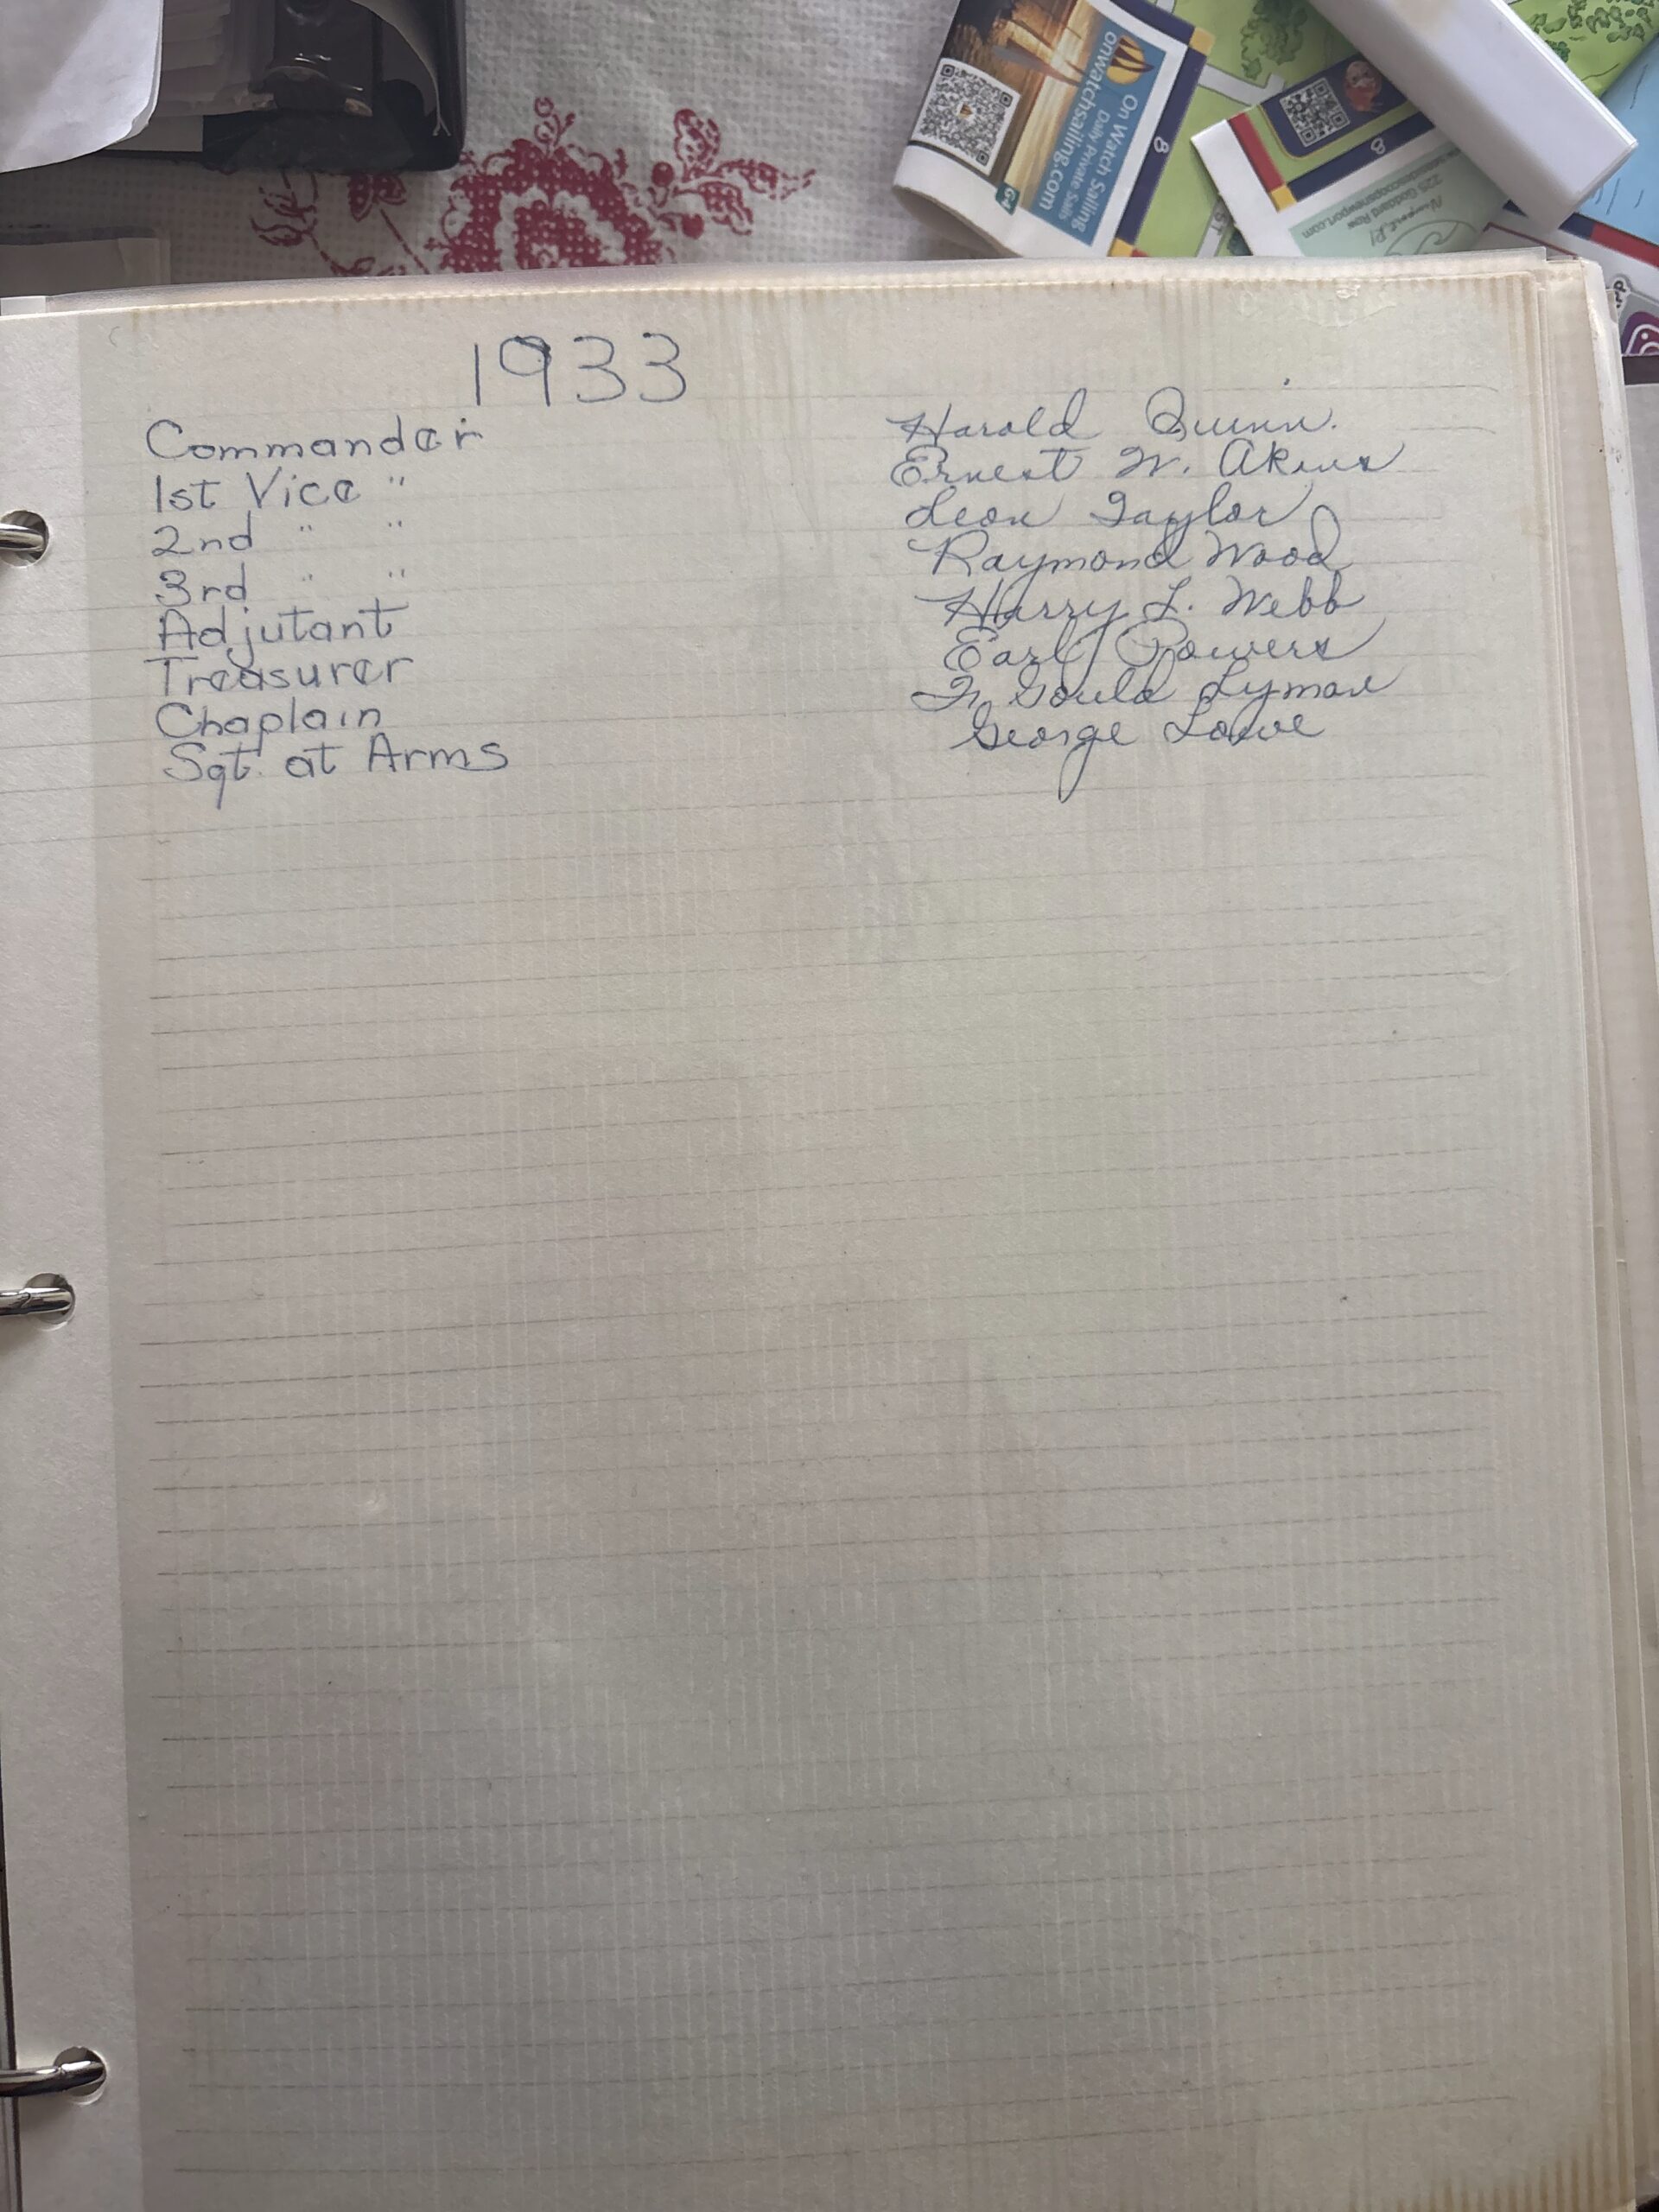 On Watch Sailing
Daily Private Sails
onwatchsailing.com
G4
8
8
Newport RI
225 Goddard Row
1933
Commander Harold Quinn.
1st Vice " Ernest W. Akins
2nd " " Leon Taylor
3rd " " Raymond Wood
Adjutant Harry L. Webb
Treasurer Earl Powers
Chaplain Gould Lyman
Sgt. at Arms George Lowe